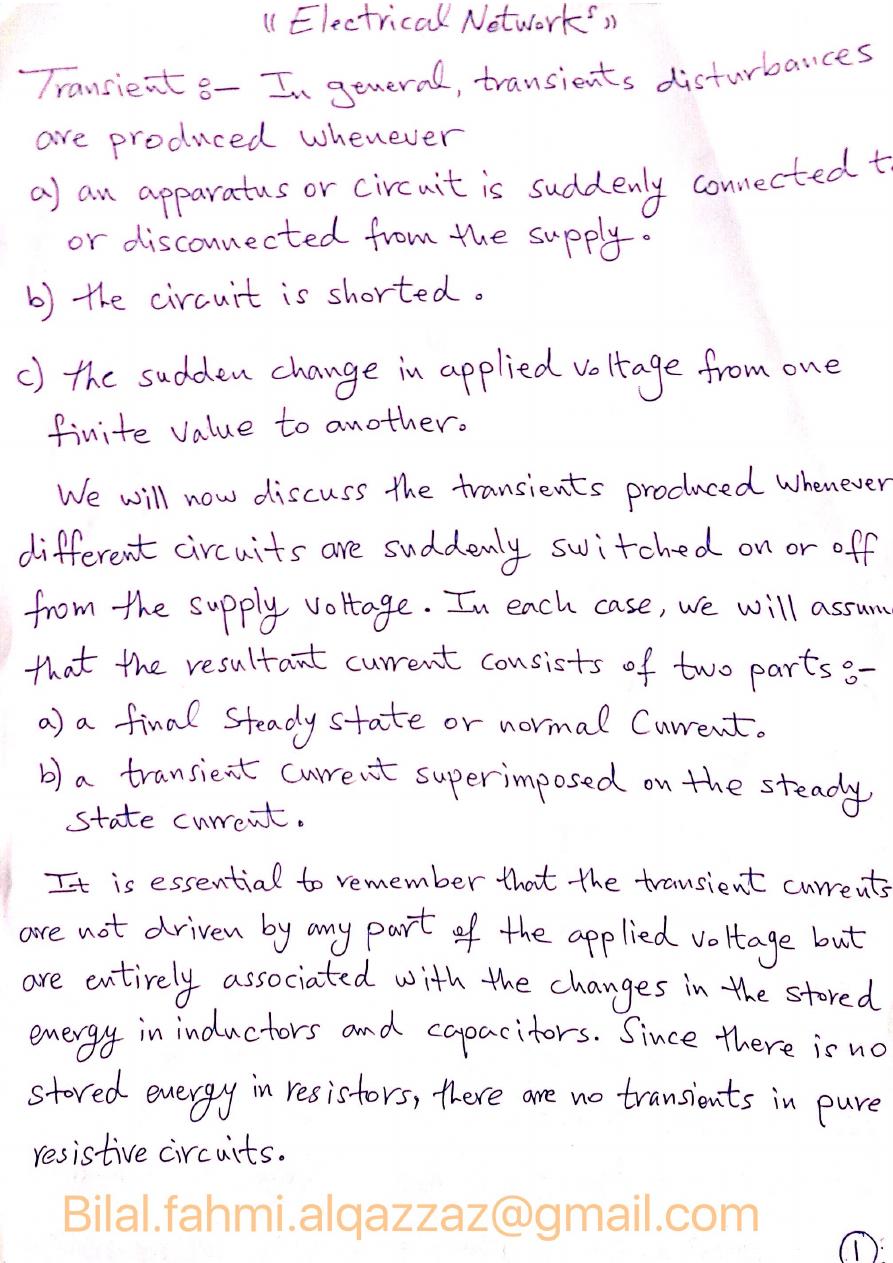 “ Electrical Networks ”
Transient :- In general, transients disturbances
are produced whenever
a) an apparatus or circuit is suddenly connected t
or disconnected from the supply.
b) the circuit is shorted.
c) the sudden change in applied voltage from one
finite value to another.
We will now discuss the transients produced whenever
different circuits are suddenly switched on or off
from the supply voltage. In each case, we will assum
that the resultant current consists of two parts :-
a) a final steady state or normal current.
b) a transient current superimposed on the steady
state current.
It is essential to remember that the transient currents
are not driven by any part of the applied voltage but
are entirely associated with the changes in the stored
energy in inductors and capacitors. Since there is no
stored energy in resistors, there are no transients in pure
resistive circuits.
Bilal.fahmi.alqazzaz@gmail.com
1